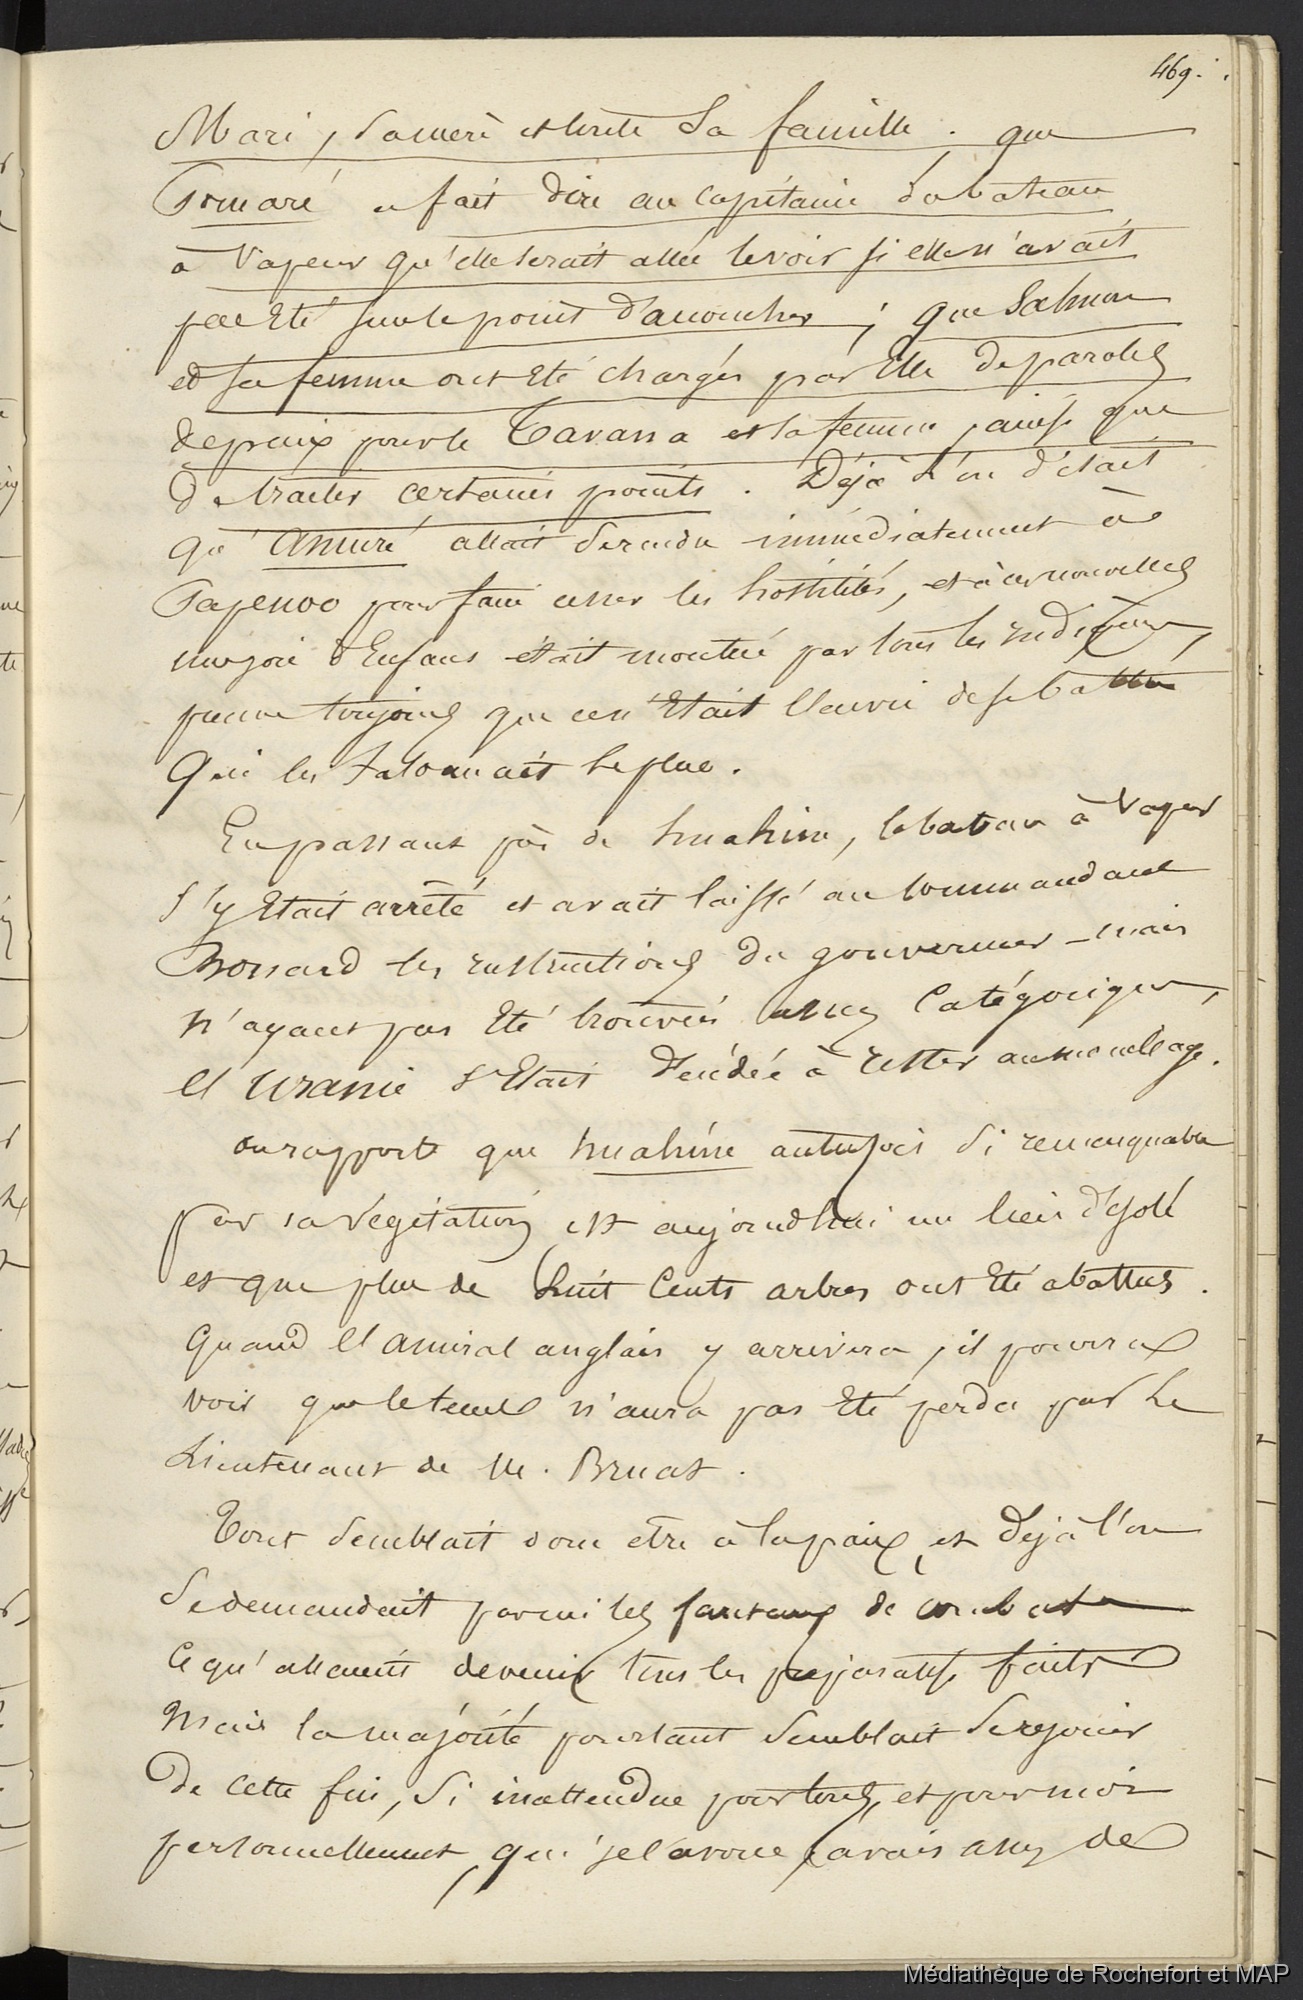 469.
Mari, sa mere et toute sa famille. que
Pomaré a fait dire au capitaine du bateau
à vapeur qu'elle serait allée le voir si elle n'avait
pas Eté sur le point d'accoucher ; que Salmon
et sa femme ont Eté chargés par Elle de paroles
de paix pour le Tavana et sa femme, ainsi que
de traiter certains points. Déjà l'on disait
qu' allait se rendre immédiatement à
Papenoo pour faire cesser les hostilités, et à ces nouvelles
une joie d'Enfans était montrée par tous les indigènes,
preuve toujours que ce n'Etait l'envie de se battre
Qui les talonnait le plus.
En passant près de huahine, le bateau à vapeur
s'y Etait arrêté et avait laissé au commandant
Bonard les instructions du gouverneur - mais
n'ayant pas Eté trouvées assez Catégoriques,
El uranie s'Etait décidée à rester au mouillage.
on rapporte que huahine autrefois si remarquable
par sa végétation, est aujourdhui un lieu désolé
et que plus de huit Cents arbres ont Eté abattus.
Quand El amiral anglais y arrivera, il pourra
voir que le temps n'aura pas Eté perdu par le
Lieutenant de M. Bruat.
Tout semblait donc etre à la paix, et déjà l'on
se demandait parmi les de combat
Ce qu'allaient devenir tous les préparatifs faits
Mais la majorité pourtant semblait se rejouir
de cette fin, si inattendue pour tous, et pour moi
personnellement, qui je l'avoue, avais assez de
Médiathèque de Rochefort et MAP